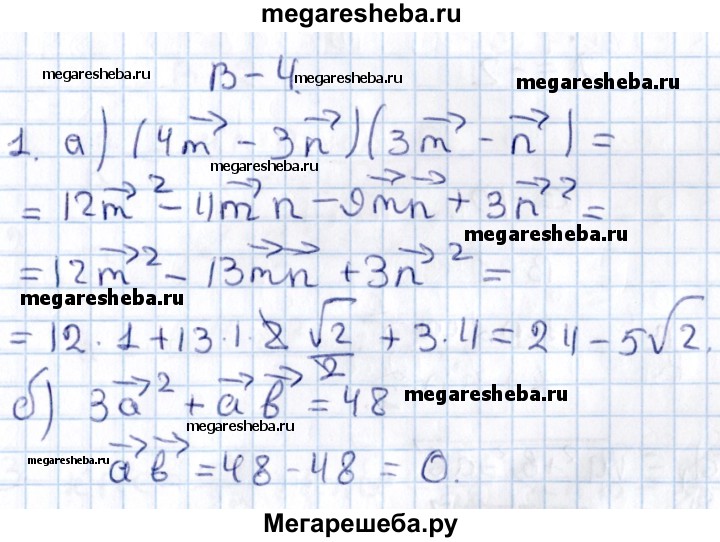 megaresheba.ru
megaresheba.ru megaresheba.ru
В-4.
megaresheba.ru
1. а) (4m⃗ - 3n⃗)(3m⃗ - n⃗) =
megaresheba.ru
= 12m⃗² - 4m⃗ n - 9m⃗n⃗ + 3n⃗² =
megaresheba.ru
= 12m⃗² - 13m⃗n⃗ + 3n⃗² =
megaresheba.ru
= 12·1 + 13·1·2 √2/2 + 3·4 = 24 - 5√2.
б) 3a⃗² + a⃗ b⃗ = 48
megaresheba.ru
megaresheba.ru
megaresheba.ru
a⃗b⃗ = 48 - 48 = 0.
Мегарешеба.ру